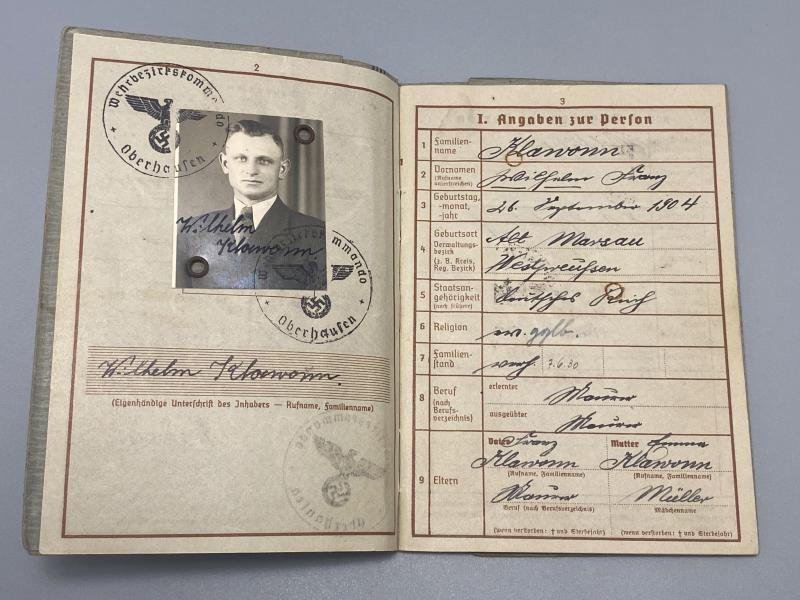 2
Wehrbezirkskommando
Oberhausen
Wilhelm
Klawonn
Oberhausen
Wilhelm Klawonn.
(Eigenhändige Unterschrift des Inhabers — Rufname, Familienname)
3
I. Angaben zur Person
1 Familien-
name
Klawonn
2 Vornamen
(Rufname
unterstreichen)
Wilhelm Franz
3 Geburtstag,
-monat,
-jahr
26. September 1904
4 Geburtsort
Verwaltungs-
bezirk
(z. B. Kreis,
Reg. Bezirk)
Alt Marsau
Westpreußen
5 Staatsan-
gehörigkeit
(auch frühere)
Deutsches Reich
6 Religion
ev. gglb.
7 Familien-
stand
verh. 7.6.30
8 Beruf
(nach
Berufs-
verzeichnis)
erlernter
Maurer
ausgeübter
Maurer
9 Eltern
Vater Franz
Klawonn
(Rufname, Familienname)
Maurer
Beruf (nach Berufsverzeichnis)
(wenn verstorben: † und Sterbejahr)
Mutter Emma
Klawonn
(Rufname, Familienname)
Müller
Mädchenname
(wenn verstorben: † und Sterbejahr)